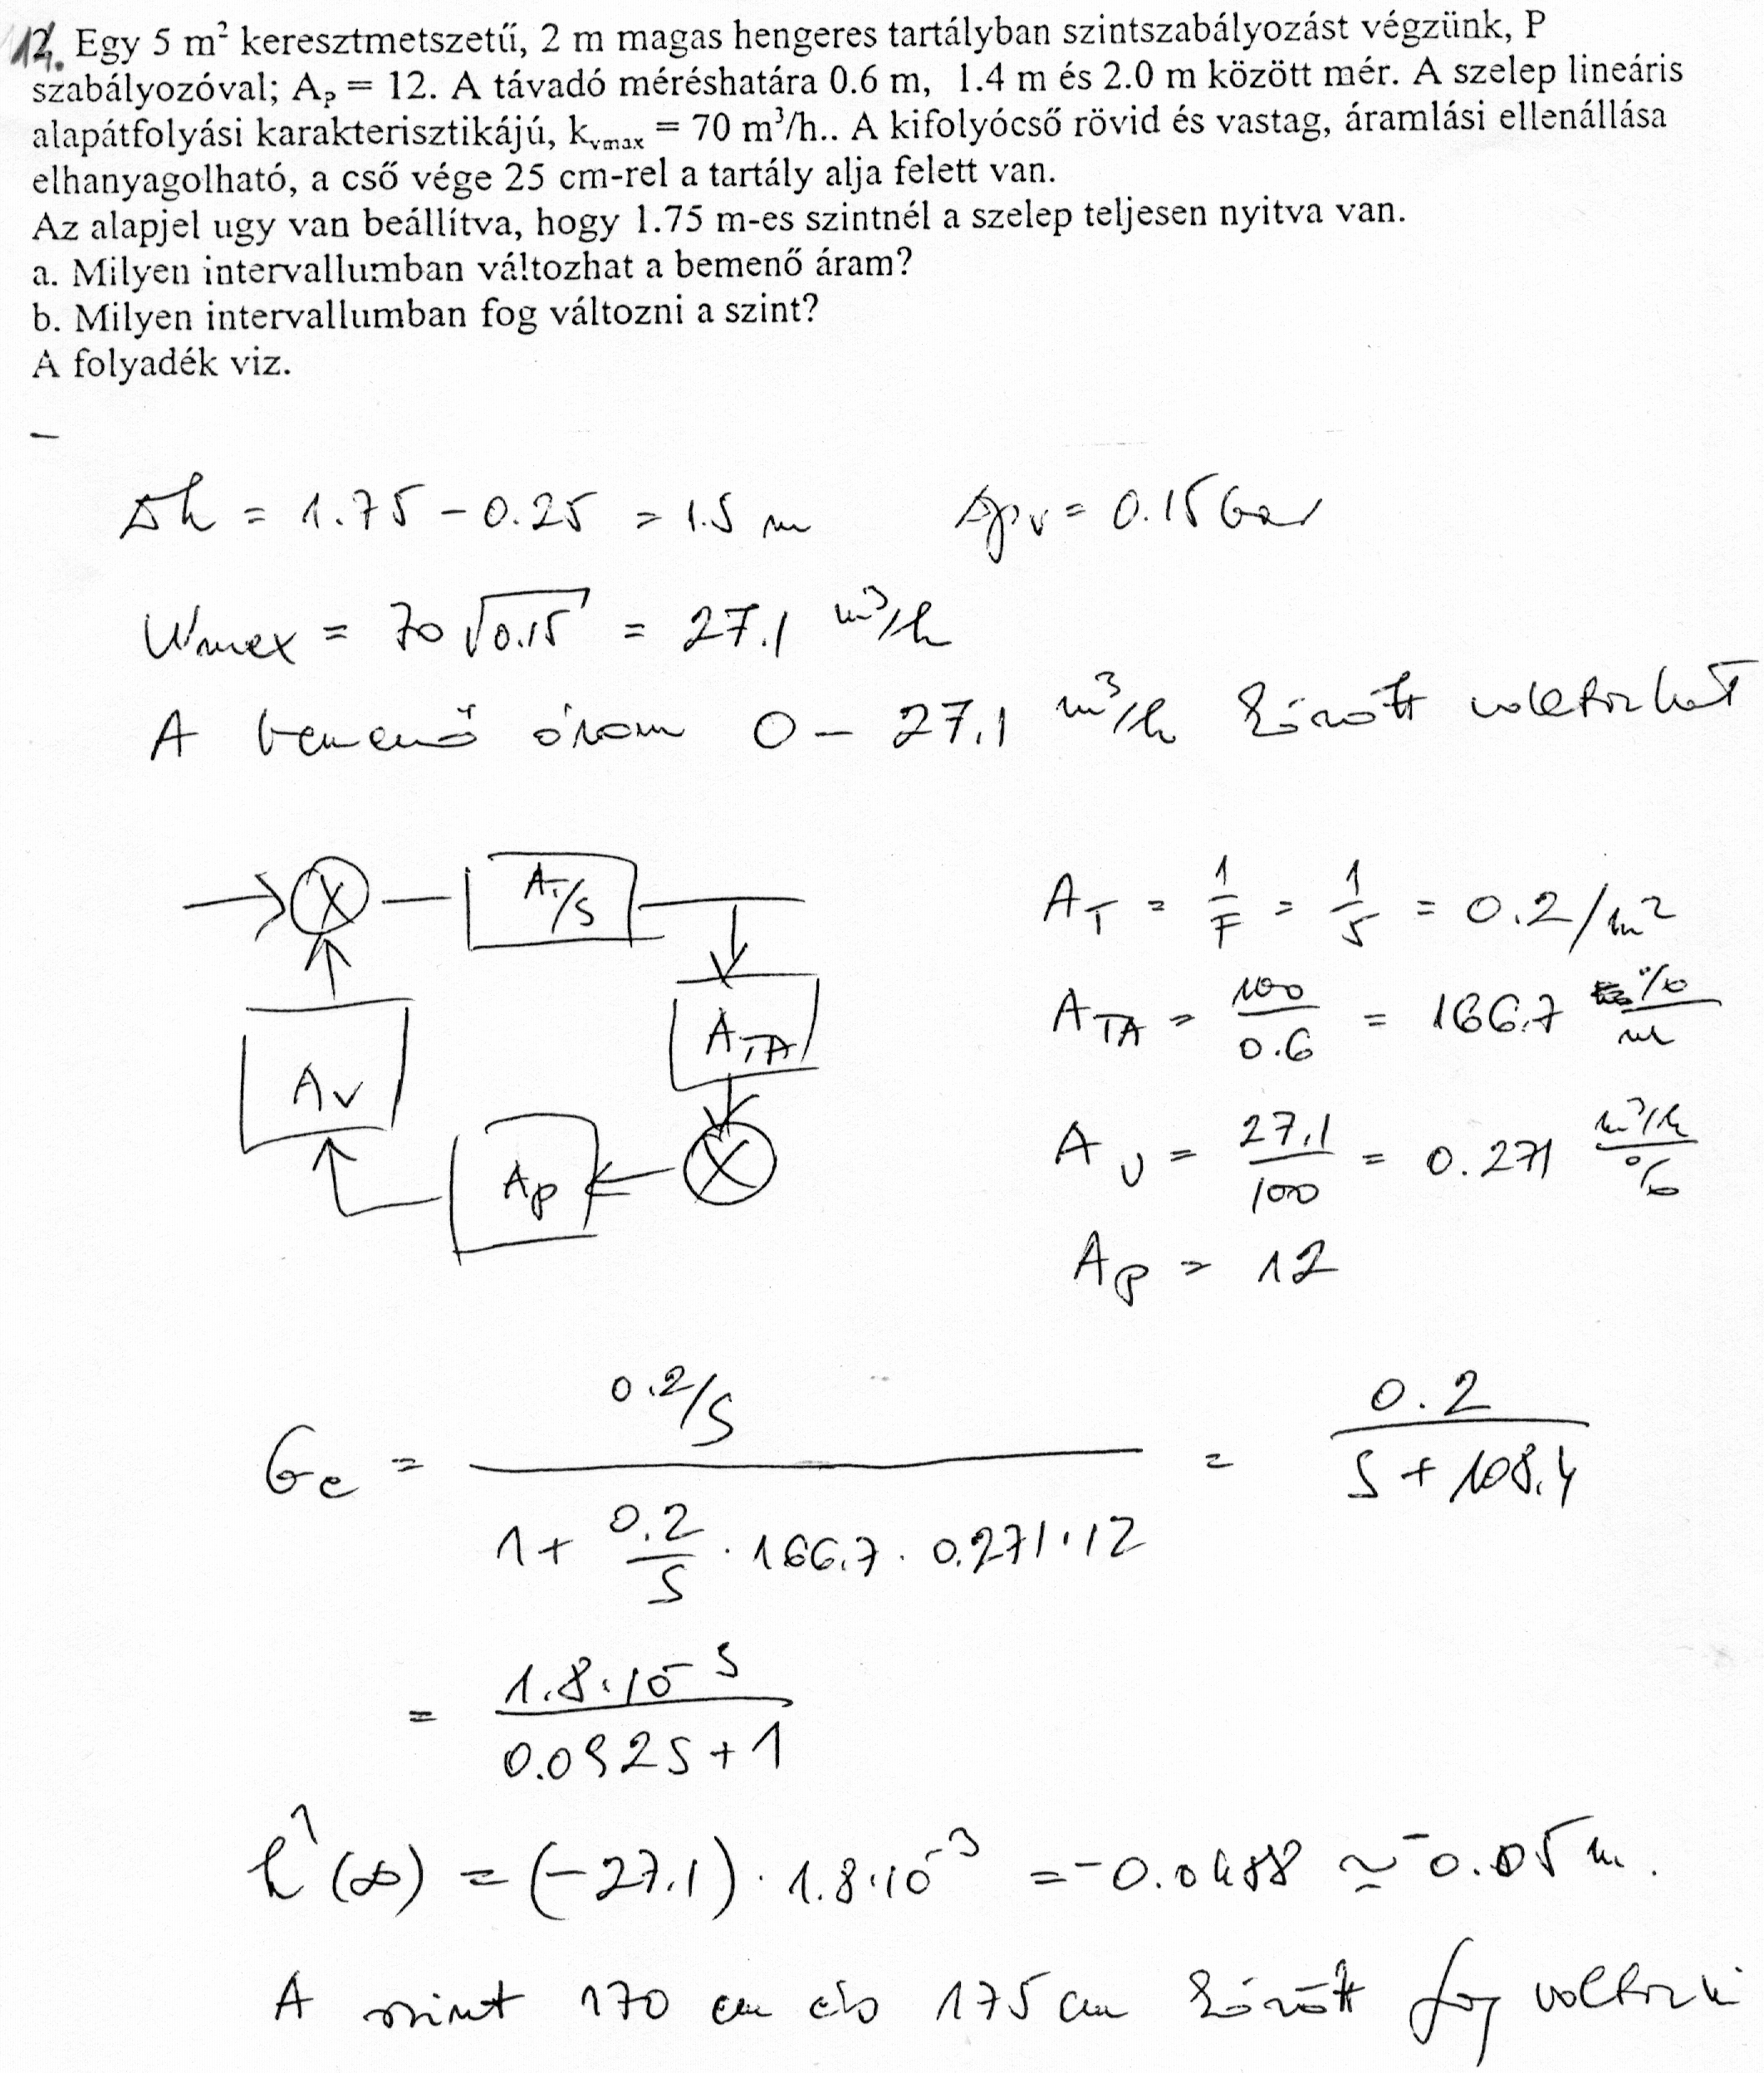 14. Egy 5 m² keresztmetszetű, 2 m magas hengeres tartályban szintszabályozást végzünk, P
szabályozóval; A_P = 12. A távadó méréshatára 0.6 m, 1.4 m és 2.0 m között mér. A szelep lineáris
alapátfolyási karakterisztikájú, k_vmax = 70 m³/h.. A kifolyócső rövid és vastag, áramlási ellenállása
elhanyagolható, a cső vége 25 cm-rel a tartály alja felett van.
Az alapjel ugy van beállítva, hogy 1.75 m-es szintnél a szelep teljesen nyitva van.
a. Milyen intervallumban változhat a bemenő áram?
b. Milyen intervallumban fog változni a szint?
A folyadék viz.
Δh = 1.75 - 0.25 = 1.5 m Δp_v = 0.15 bar
W_max = 70 √0.15 = 27.1 m³/h
A bemenő áram 0 - 27.1 m³/h között változhat
A_T/s A_T = 1/F = 1/5 = 0.2/m²
A_TA A_TA = 100/0.6 = 166.7 %/m
A_v A_v = 27.1/100 = 0.271 m³/h/%
A_P A_P = 12
G_e = (0.2/s)/(1 + 0.2/s · 166.7 · 0.271 · 12) = 0.2/(s + 108.4)
= 1.8·10⁻³/(0.092s + 1)
h¹(∞) = (-27.1) · 1.8·10⁻³ = -0.0488 ≃ -0.05 m.
A szint 170 cm és 175 cm között fog változni